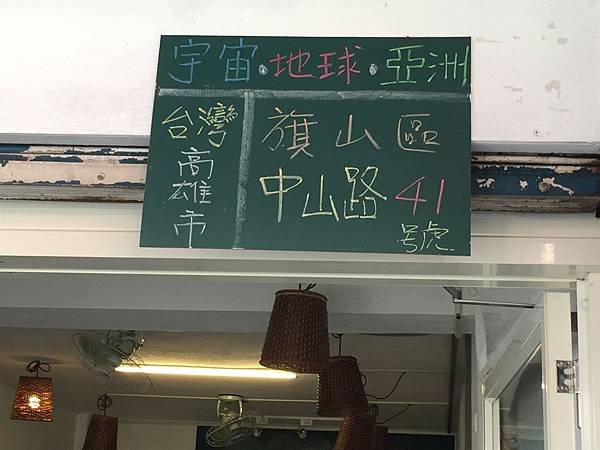 宇宙·地球·亞洲
台灣
高雄市
旗山區
中山路41
號